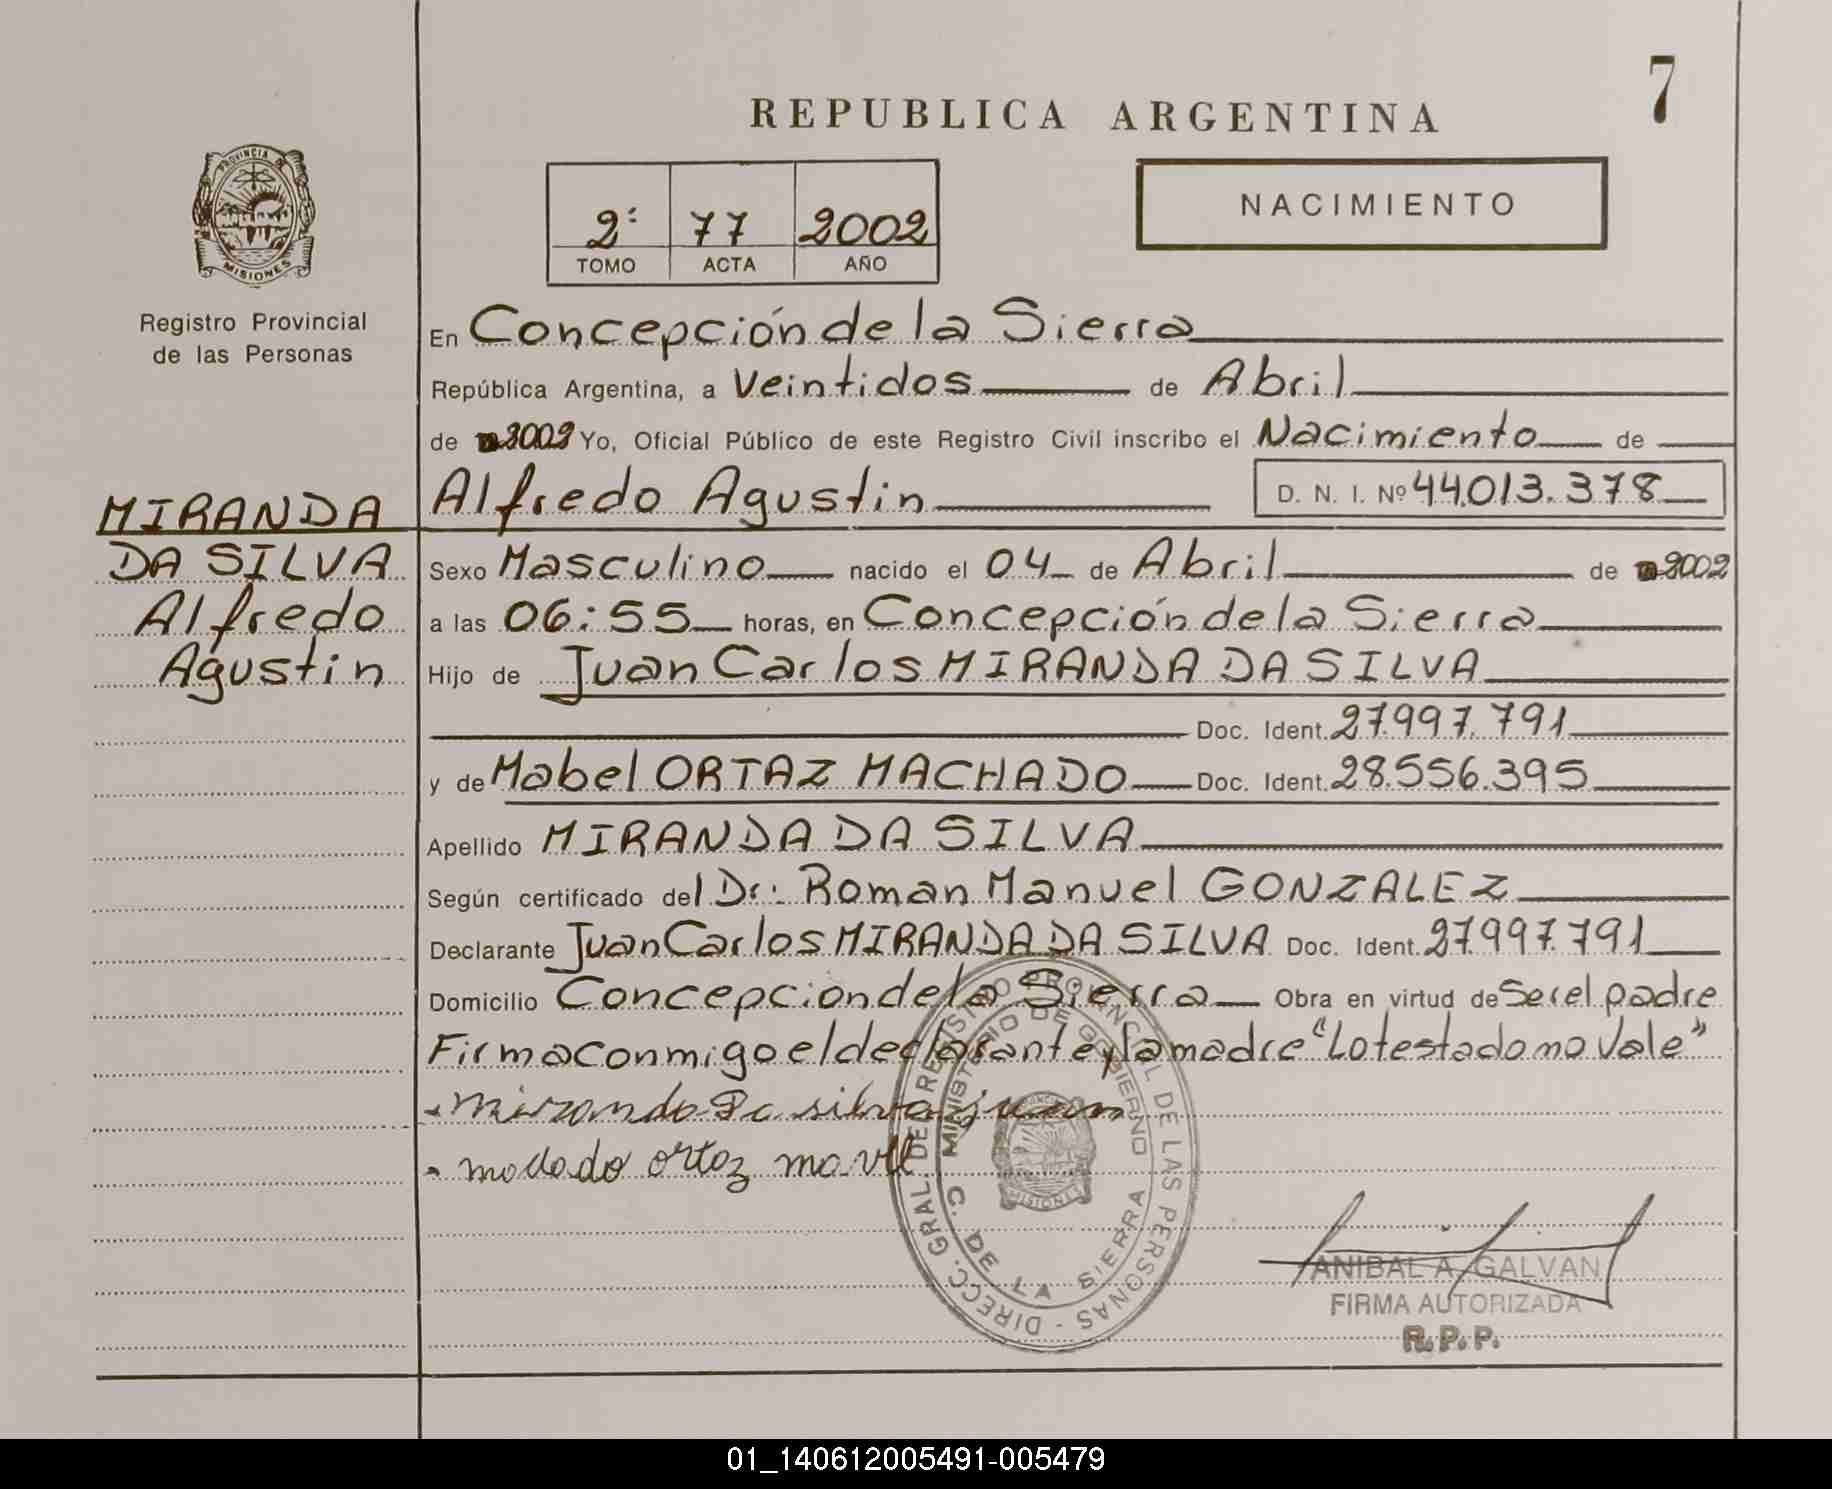 7
REPUBLICA ARGENTINA
PROVINCIA DE
MISIONES
2º 77 2002
TOMO ACTA AÑO
NACIMIENTO
Registro Provincial
de las Personas
En Concepción de la Sierra
República Argentina, a Veintidos de Abril
de 2002 Yo, Oficial Público de este Registro Civil inscribo el Nacimiento de
Alfredo Agustin D. N. I. Nº 44.013.378
MIRANDA
DA SILVA
Alfredo
Agustin
Sexo Masculino nacido el 04 de Abril de 2002
a las 06:55 horas, en Concepción de la Sierra
Hijo de Juan Carlos MIRANDA DA SILVA
Doc. Ident. 27.997.791
y de Mabel ORTAZ MACHADO Doc. Ident. 28.556.395
Apellido MIRANDA DA SILVA
Según certificado del Dr: Roman Manuel GONZALEZ
Declarante Juan Carlos MIRANDA DA SILVA Doc. Ident. 27.997.791
Domicilio Concepcion de la Sierra Obra en virtud de Ser el padre
Firma conmigo el declarante y la madre "Lo testado no Vale"
Miranda Da silva juan
ortaz
DIRECC. GRAL. DEL REGISTRO PROVINCIAL DE LAS PERSONAS -
MINISTERIO DE GOBIERNO
C. DE LA SIERRA
MISIONES
ANIBAL A. GALVAN
FIRMA AUTORIZADA
R.P.P.
01_140612005491-005479